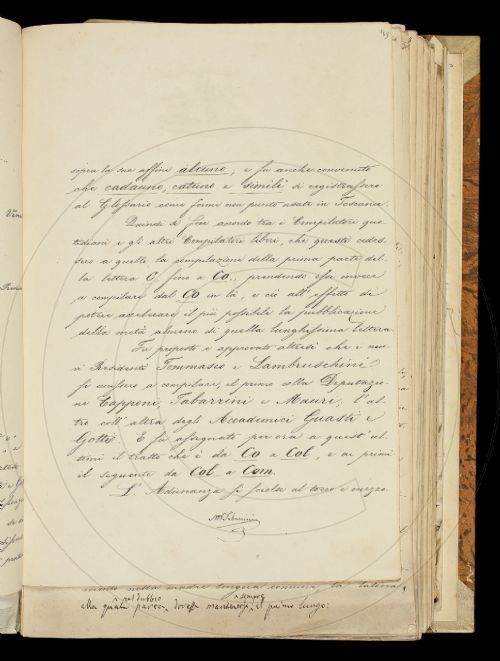 149
sopra la sua affine alcuno, e fu anche convenuto
che cadauno, catuno e simili si registrassero
al Glossario come forme non punto usate in Toscana.
Quindi si fece accordo tra i Compilatori quo-
tidiani e gli altri Compilatori liberi, che questi cedes-
sero a quelli la compilazione della prima parte del-
la lettera C, fino a Co., prendendo essi invece
a compilare dal Co in là, e ciò all'effetto di
potere accelerare il più possibile la pubblicazione
della metà almeno di quella lunghissima lettera.
Fu proposto e approvato altresì che i nuo-
vi Residenti Tommaseo e Lambruschini
si unissero a compilare, il primo colla Deputazio-
ne Capponi, Tabarrini e Mauri, l'al-
tro coll'altra degli Accademici Guasti e
Gotti. E fu assegnato per ora a quest'ul-
timi il tratto che è da Co a Col, e ai primi
il seguente da Col a Com.
L'Adunanza si sciolse al tocco e mezzo.
nella madre lingua comune, la latina,
a pel dubbio a sempre
alla quale pareva dovesse mantenersi il primo luogo: